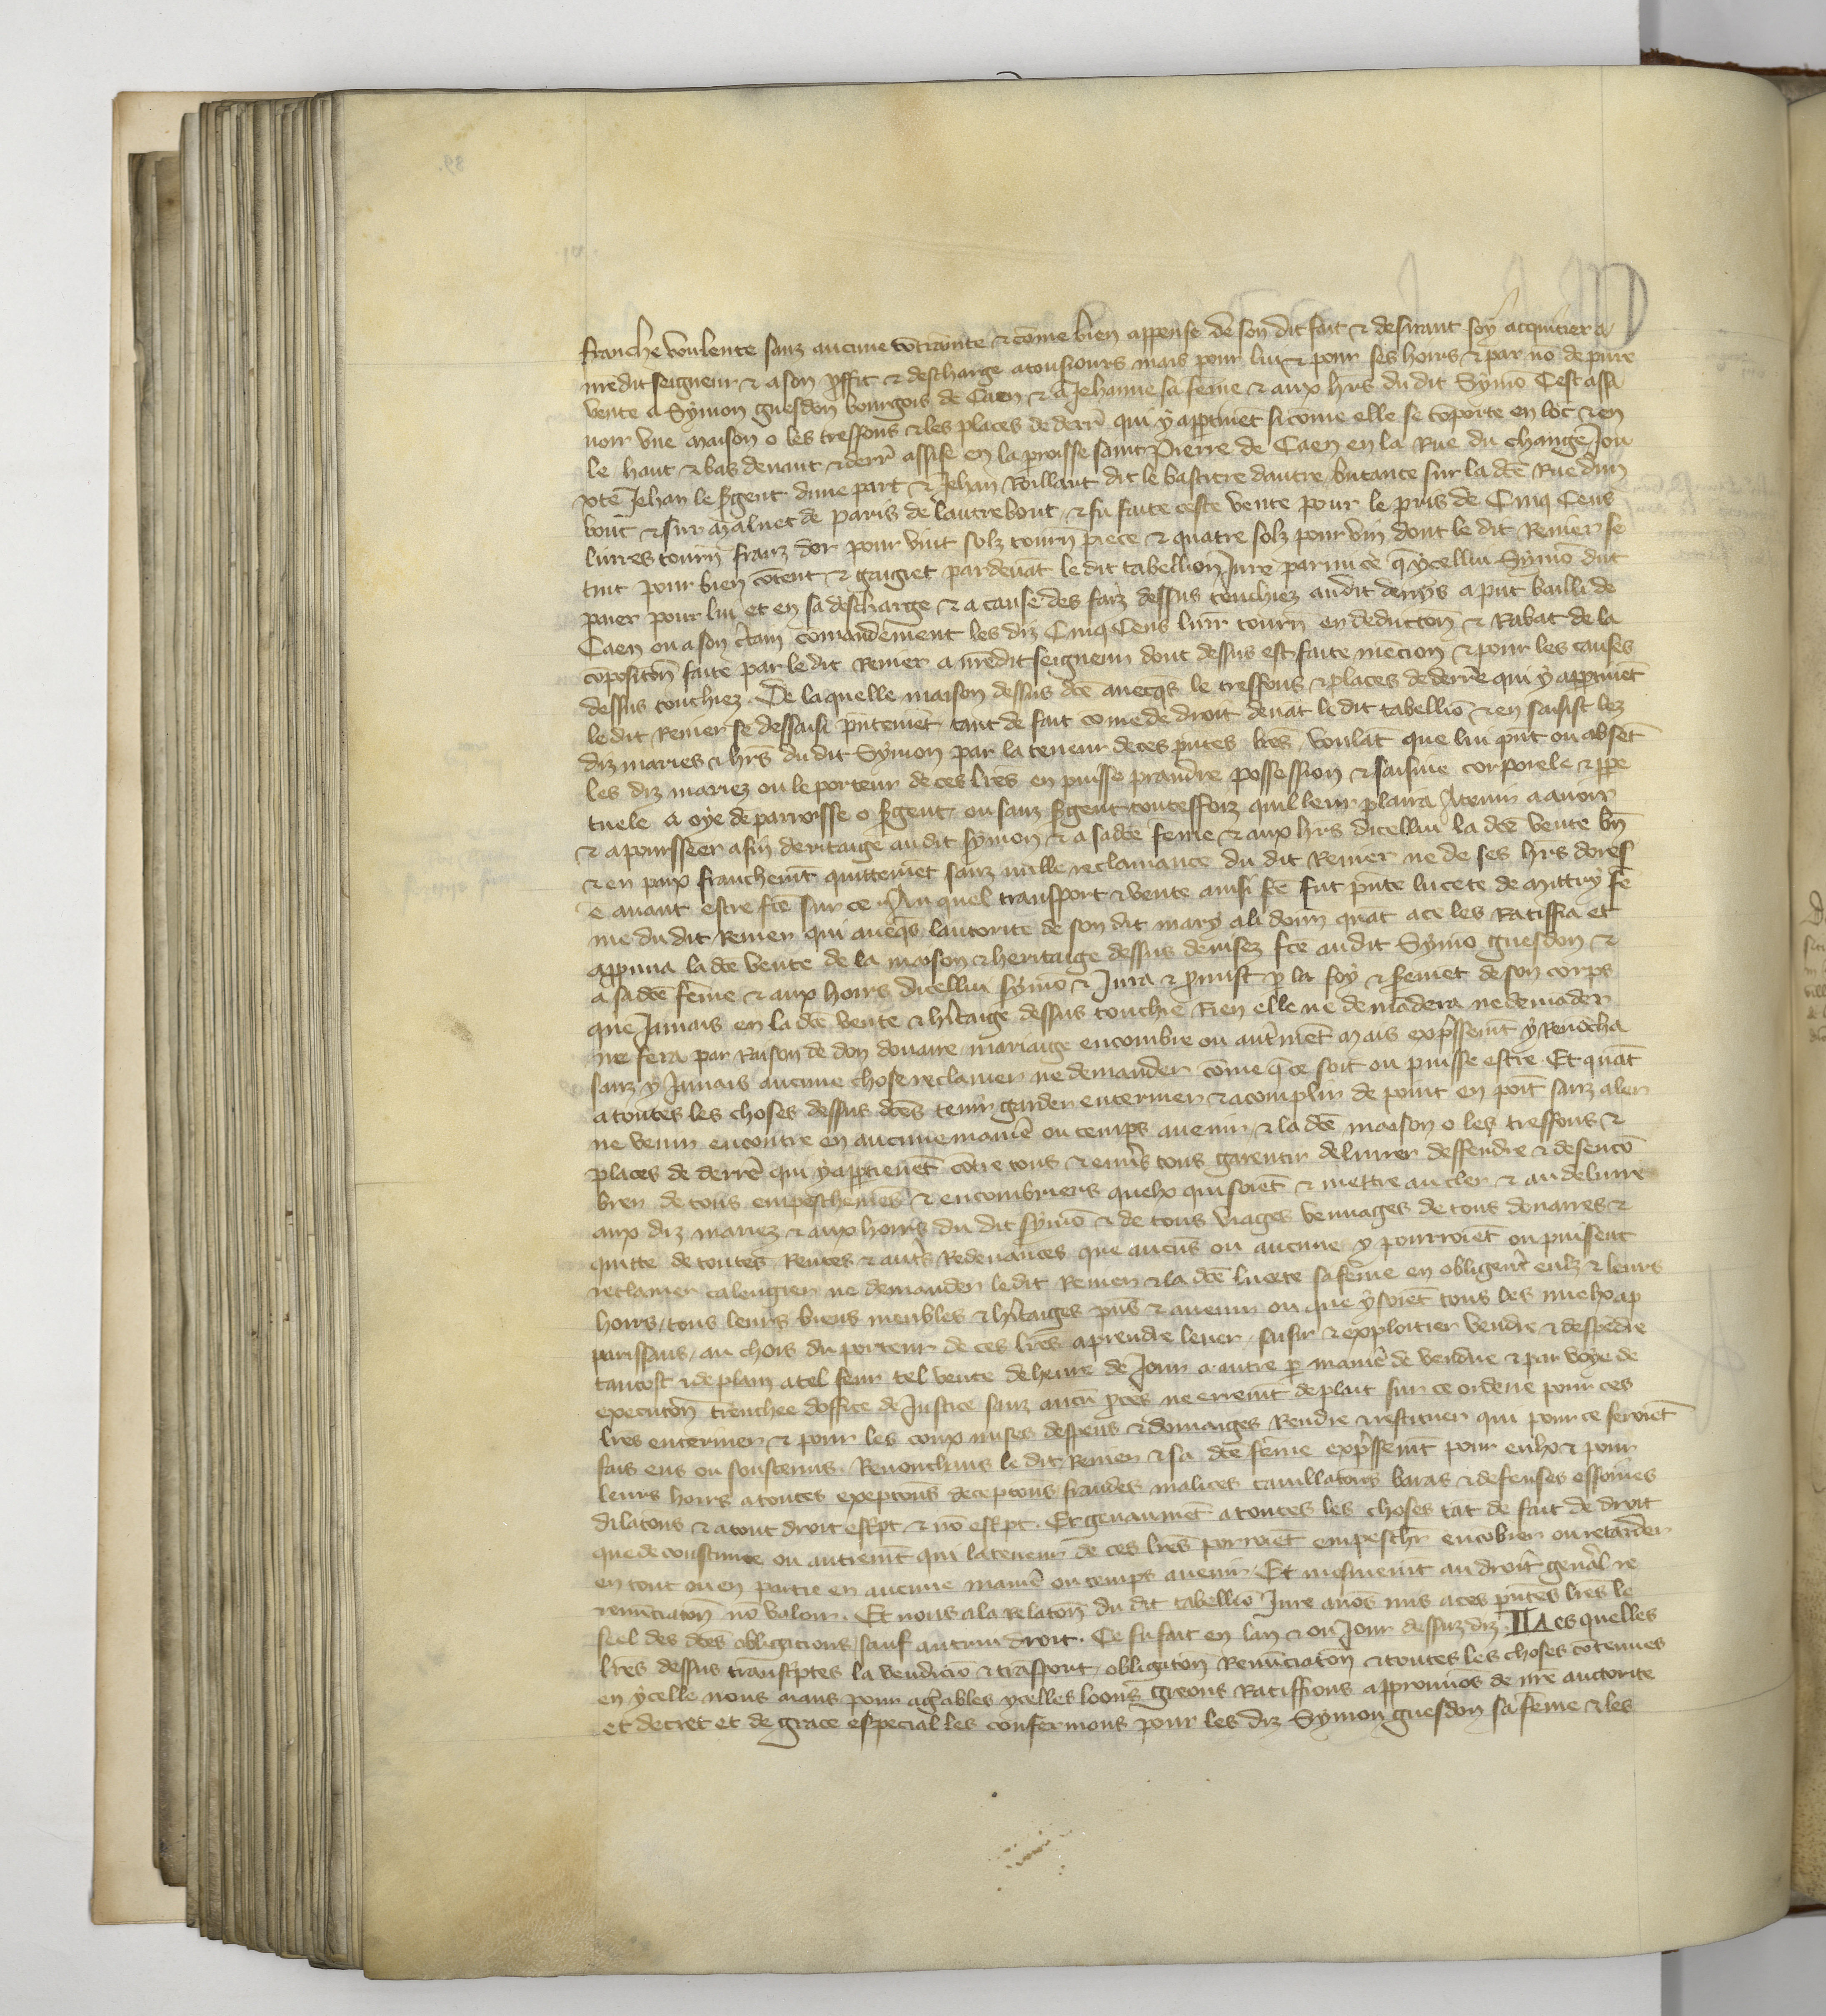 franche voulente sanz aucune cōtrainte & cōme bien appense de son dit fait & desirant soy acquitier a
nrēdit seigneur & a son p̄ffit & descharge a tousiours mais pour lui & pour ses hoirs & par nō de pure
vente a Symon guesdon bourgois de Caen & a Jehanne sa fēme & aux hrs du dit Symō Cest assa
uoir vne maison o les treffons & les places de derr̄ qui y appt̄iennēt si cōme elle se cōporte en lōc & en
le haut & bas deuant & derr̄ assise en la p̄roisse saint Pierre de Caen en la Rue du change Jou
xte Jehan le s̄gent dune part & Jehan Roillart dit le bastitre dautre butante sur la dc̄e Rue dun
bout & sur maluet de paris de lautre bout & fu faite ceste vente pour le pris de Cinq Cens
liures tourn̄ franz dor pour vint solz tourn̄ piece & quatre solz pour vin dont le dit Renier se
tint pour bien cōtent & gaigiet par deuāt le dit tabellion Jure parmi ce q̄ ycellui Symō dut
paier pour lui et en sa descharge & a cause des faiz dessus touchiez audit denys a pn̄t bailli de
Caen ou a son c̄tain cōmandement les diz Cinq Cens liur̄ tourn̄ en deductōn & Rabat de la
cōpositōn faite par le dit Renier a nrēdit seigneur dont dessus est faite mēcion & pour les causes
dessus touchiez. De laquelle maison dessus dc̄e auecq̄s le treffons & places de derrē qui y appt̄iennēt
le dit Renier se dessaisi pn̄temēt tant de fait cōme de droit deuāt le dit tabelliō & en saisist lez
diz maries & hrs̄ du dit Symon par la teneur de ces pn̄tes lrēs voulāt que lui pn̄t ou absēt
les diz mariez ou le porteur de ces lrēs en puisse prandre possession & saisine corporele & p̄pe
tuele a oye de parroisse o s̄gent ou sanz s̄gent toutesfoiz quil leur plaira A tenir a auoir
& a poursseer a fin deritaige au dit symon & a sadc̄e fēme & aux hrs̄ dicellui la dc̄e vente bn̄
& en paix franchemt̄ quittemēt sanz nulle reclamance du dit Renier ne de ses hrs dores
e auant estre fc̄e sur ce Au quel transport & vente ainsi fc̄e fut pn̄te lucete de mittry fē
me du dit Renier qui aueq̄s lautorite de son dit mary a li donn̄ quāt a ce les Ratiffia et
appuua la dc̄e vente de la maison & heritaige dessus deuisez fc̄e au dit Symō guesdon &
a sa dc̄e fēme & aux hoirs dicellui symō & Jura & p̄mist p̄ la foy & s̄emēt de son corps
que Jamais en la dc̄e vente & hr̄itaige dessus touchie Rien elle ne demādera ne demāder
ne fera par Raison de don douaire mariaige encombre ou aut̄mēt Mais exp̄ssemt̄ y Renōcha
sanz y Jamais aucune chose reclamer ne demander cōme q̄ ce soit ou puisse estre. Et quāt
a toutes les choses dessus dc̄es tenir garder enteriner & acomplir de point en poīt sanz aler
ne venir encontre en aucune manie᷑ ou temps auenir & la dc̄e maison o les treffons &
places de derrē qui y apptienēt cōtre tous & enuers tous garentir deliurer deffendre & desencō
brer de tous empeschemēs & encombriers quelx qui soiēt & mettre au cler & au deliure
aux diz mariez & aux hoirs du dit symō & de tous viages veuuages de tous douaires &
quitte de toutes Rentes & autrs̄ Redeuances que aucūs ou aucune y pourroiēt ou puissent
reclamer calengier ne demander ledit Renier & la dc̄e lucete sa fēme en obligerēt eulz & leurs
hoirs / tous leurs biens meubles & hr̄itaiges pn̄s & auenir ou que y soiēt tous les nuehoap
parissans / au chois du porteur de ces lrēs a prendre leuer saisir & exploitier vendre & despēdre
tantost & de plain a tel feur tel vente de heure de Jour a autre p̄ manie᷑ de vendue & par voye de
execucōn trenchee doffice de Justice sanz autr̄ p̄ces ne erremt̄ de plait sur ce ordene pour ces
lrēs enteriner & pour les coux mises despens & dōmaiges Rendre & restituer qui pour ce seroiēt
fais eus ou soustenus. Renonchans le dit Renier & sa dc̄e fēme exp̄ssemt̄ pour eulx & pour
leurs hoirs a toutes exepcōns decepcōns fraudes malices cauillatōns baras & defenses essoines
dilatōns & a tout droit esc̄pt & nō esc̄pt. Et genaumēt a toutes les choses tāt de fait de droit
que de coustume ou autremt̄ qui la teneur de ces lrēs porroiēt empescher encōbrer ou retarder
en tout ou en partie en aucune manie᷑ ou temps auenir. Et mesmemt̄ au droit genāl re
renūciatōn nō valoir. Et nous a la relatōn du dit tabelliō Jure auōs mis a ces pn̄tes lrēs le
seel des dc̄es obligacions sauf autrui droit. Ce fu fait en lan & ou Jour dessuz diz. Les quelles
lrēs dessus transc̄ptes la vendiciō & trāsport obligatōn Renūciatōn & toutes les choses cōtenues
en ycelle nous aians pour agrēables ycelles loons greons Ratiffions approuuōs de nrē auctorite
et decret et de grace especial les confermons pour les diz Symon guesdon sa fēme & les